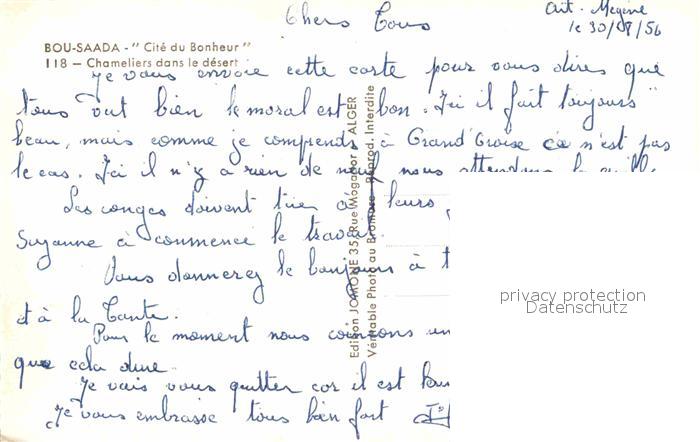 Chers Tous
le 30/08/56
BOU-SAADA - "Cité du Bonheur"
118 — Chameliers dans le désert
Je vous envoie cette carte pour vous dires que
tous vat bien le moral est bon. Ici il fait toujours
beau, mais comme je comprends à Grand'Croise ce n'est pas
le cas. Ici il n'y a rien de neuf nous attendons la quille
Les conges doivent tirer à leurs
Suzanne à commencé le travail.
Vous donnerez le bonjour à t
et à la Tante.
Pour le moment nous
que cela dure.
Je vais vous quitter car il est
Je vous embrasse tous bien fort
Edition JOMONE 35, Rue Mogador - ALGER
Véritable Photo au Bromure - Reprod. Interdite
privacy protection
Datenschutz